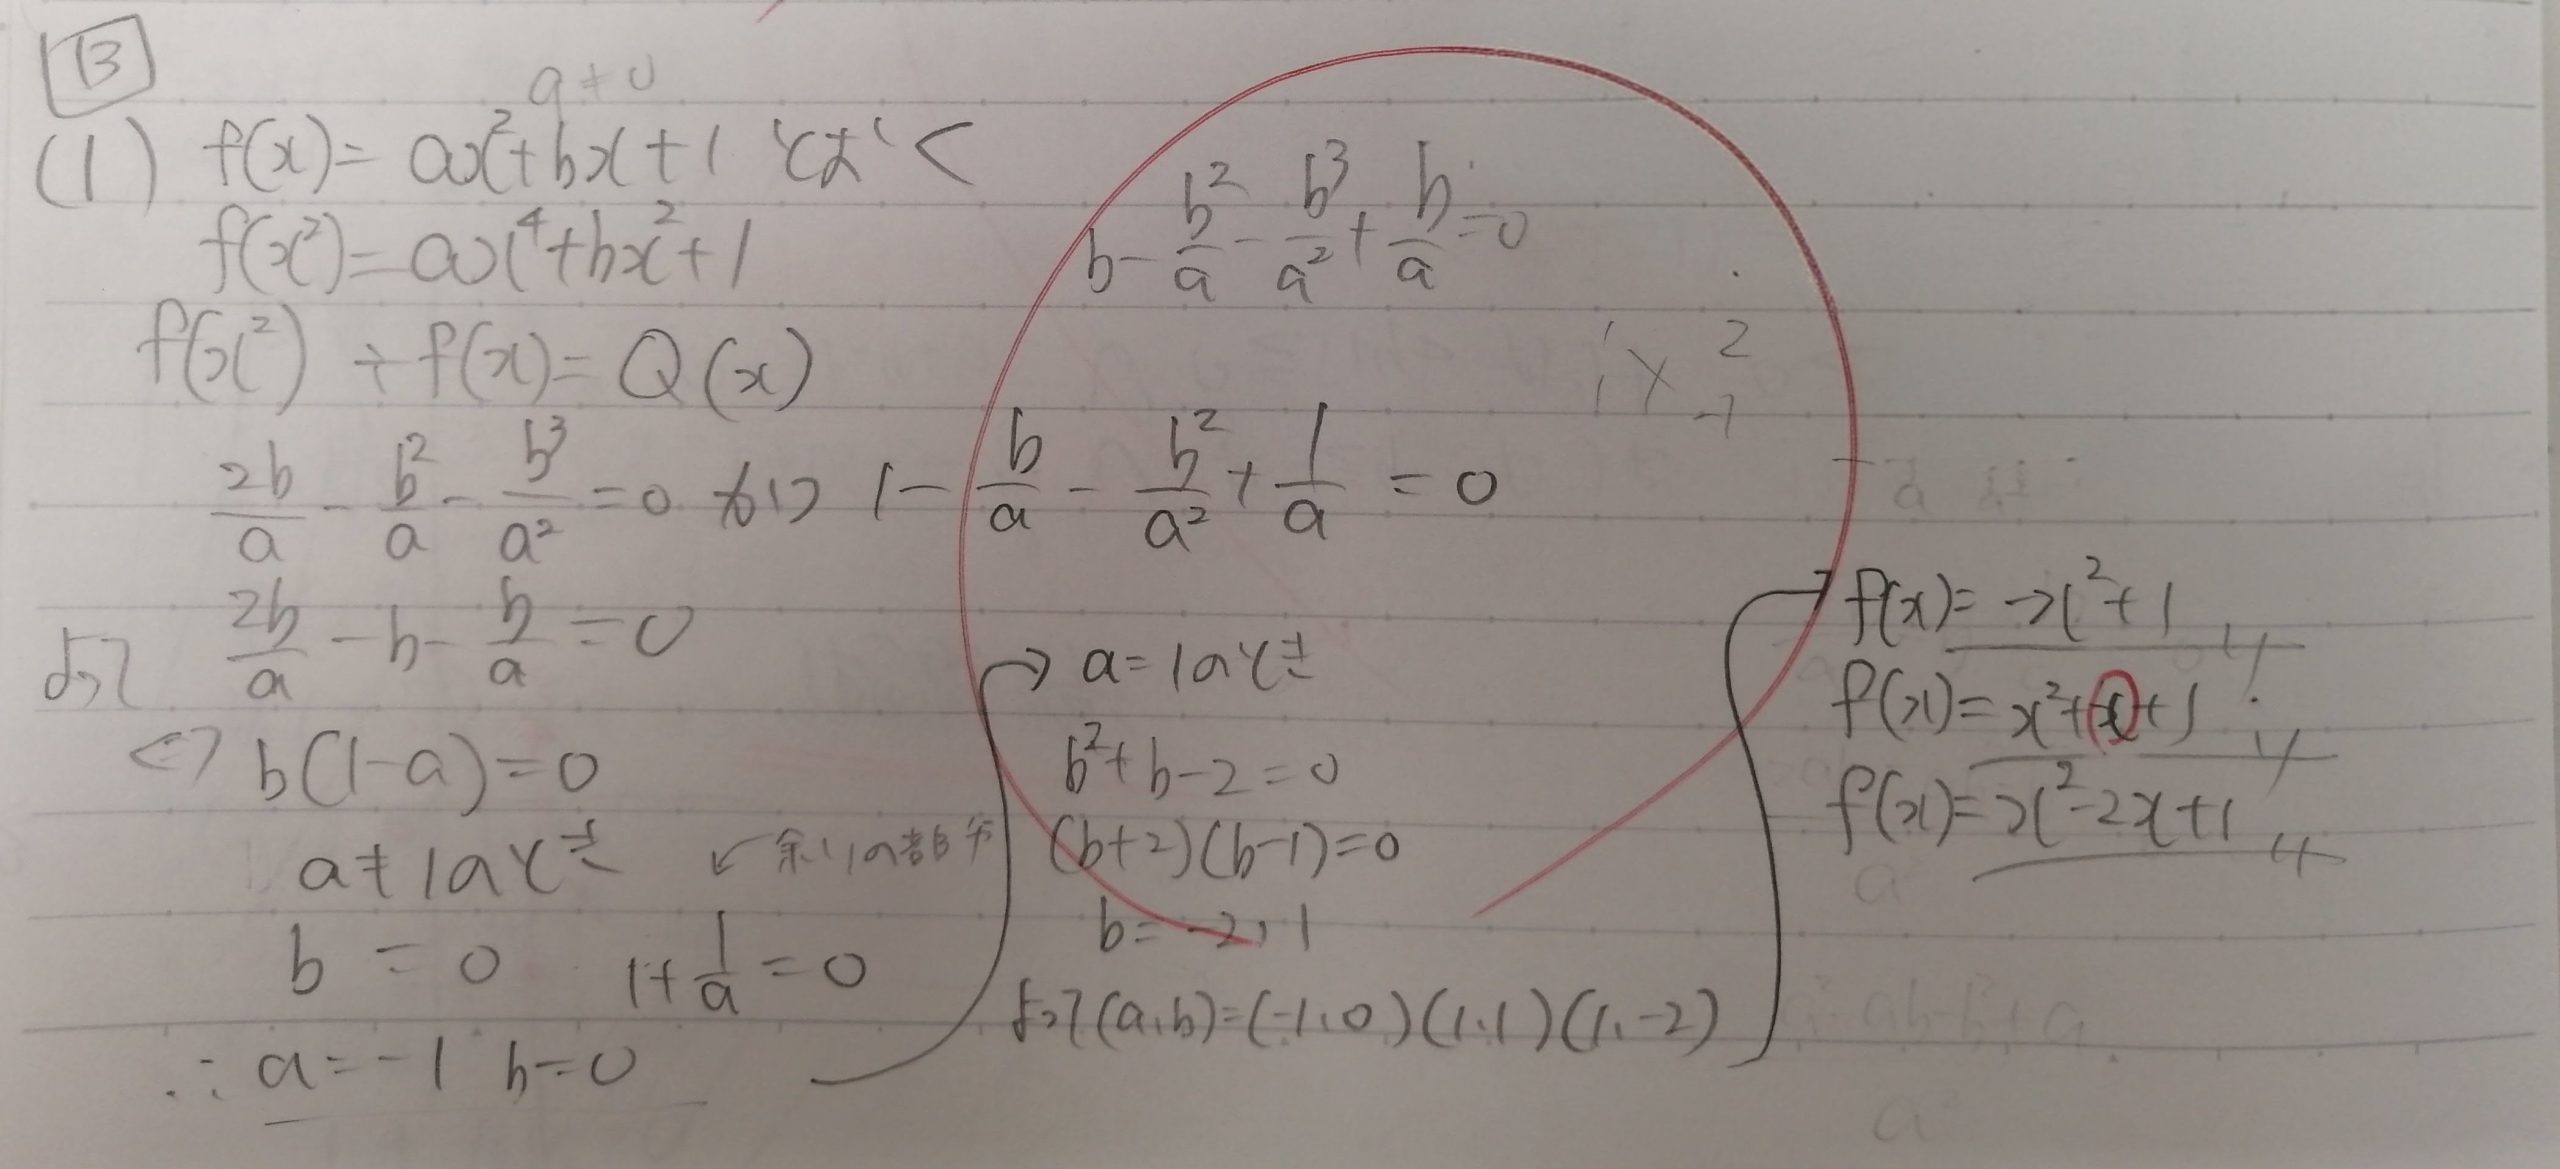 13
a≠0
(1) f(x)= ax²+bx+1 とおく
f(x²)=ax⁴+bx²+1
f(x²) ÷ f(x)= Q(x)
2b/a - b²/a - b³/a² = 0 かつ 1 - b/a - b²/a² + 1/a = 0
よって 2b/a - b - b/a = 0
⇔ b(1-a)=0
a≠1のとき ↙余りの部分
b = 0 1+1/a=0
∴ a=-1 b=0
b - b²/a - b³/a² + b/a = 0
1 2
1 × -1
→ a=1のとき
b²+b-2=0
(b+2)(b-1)=0
b=-2, 1
よって(a,b)=(-1,0)(1,1)(1,-2)
f(x)=-x²+1
f(x)=x²+x+1
f(x)=x²-2x+1